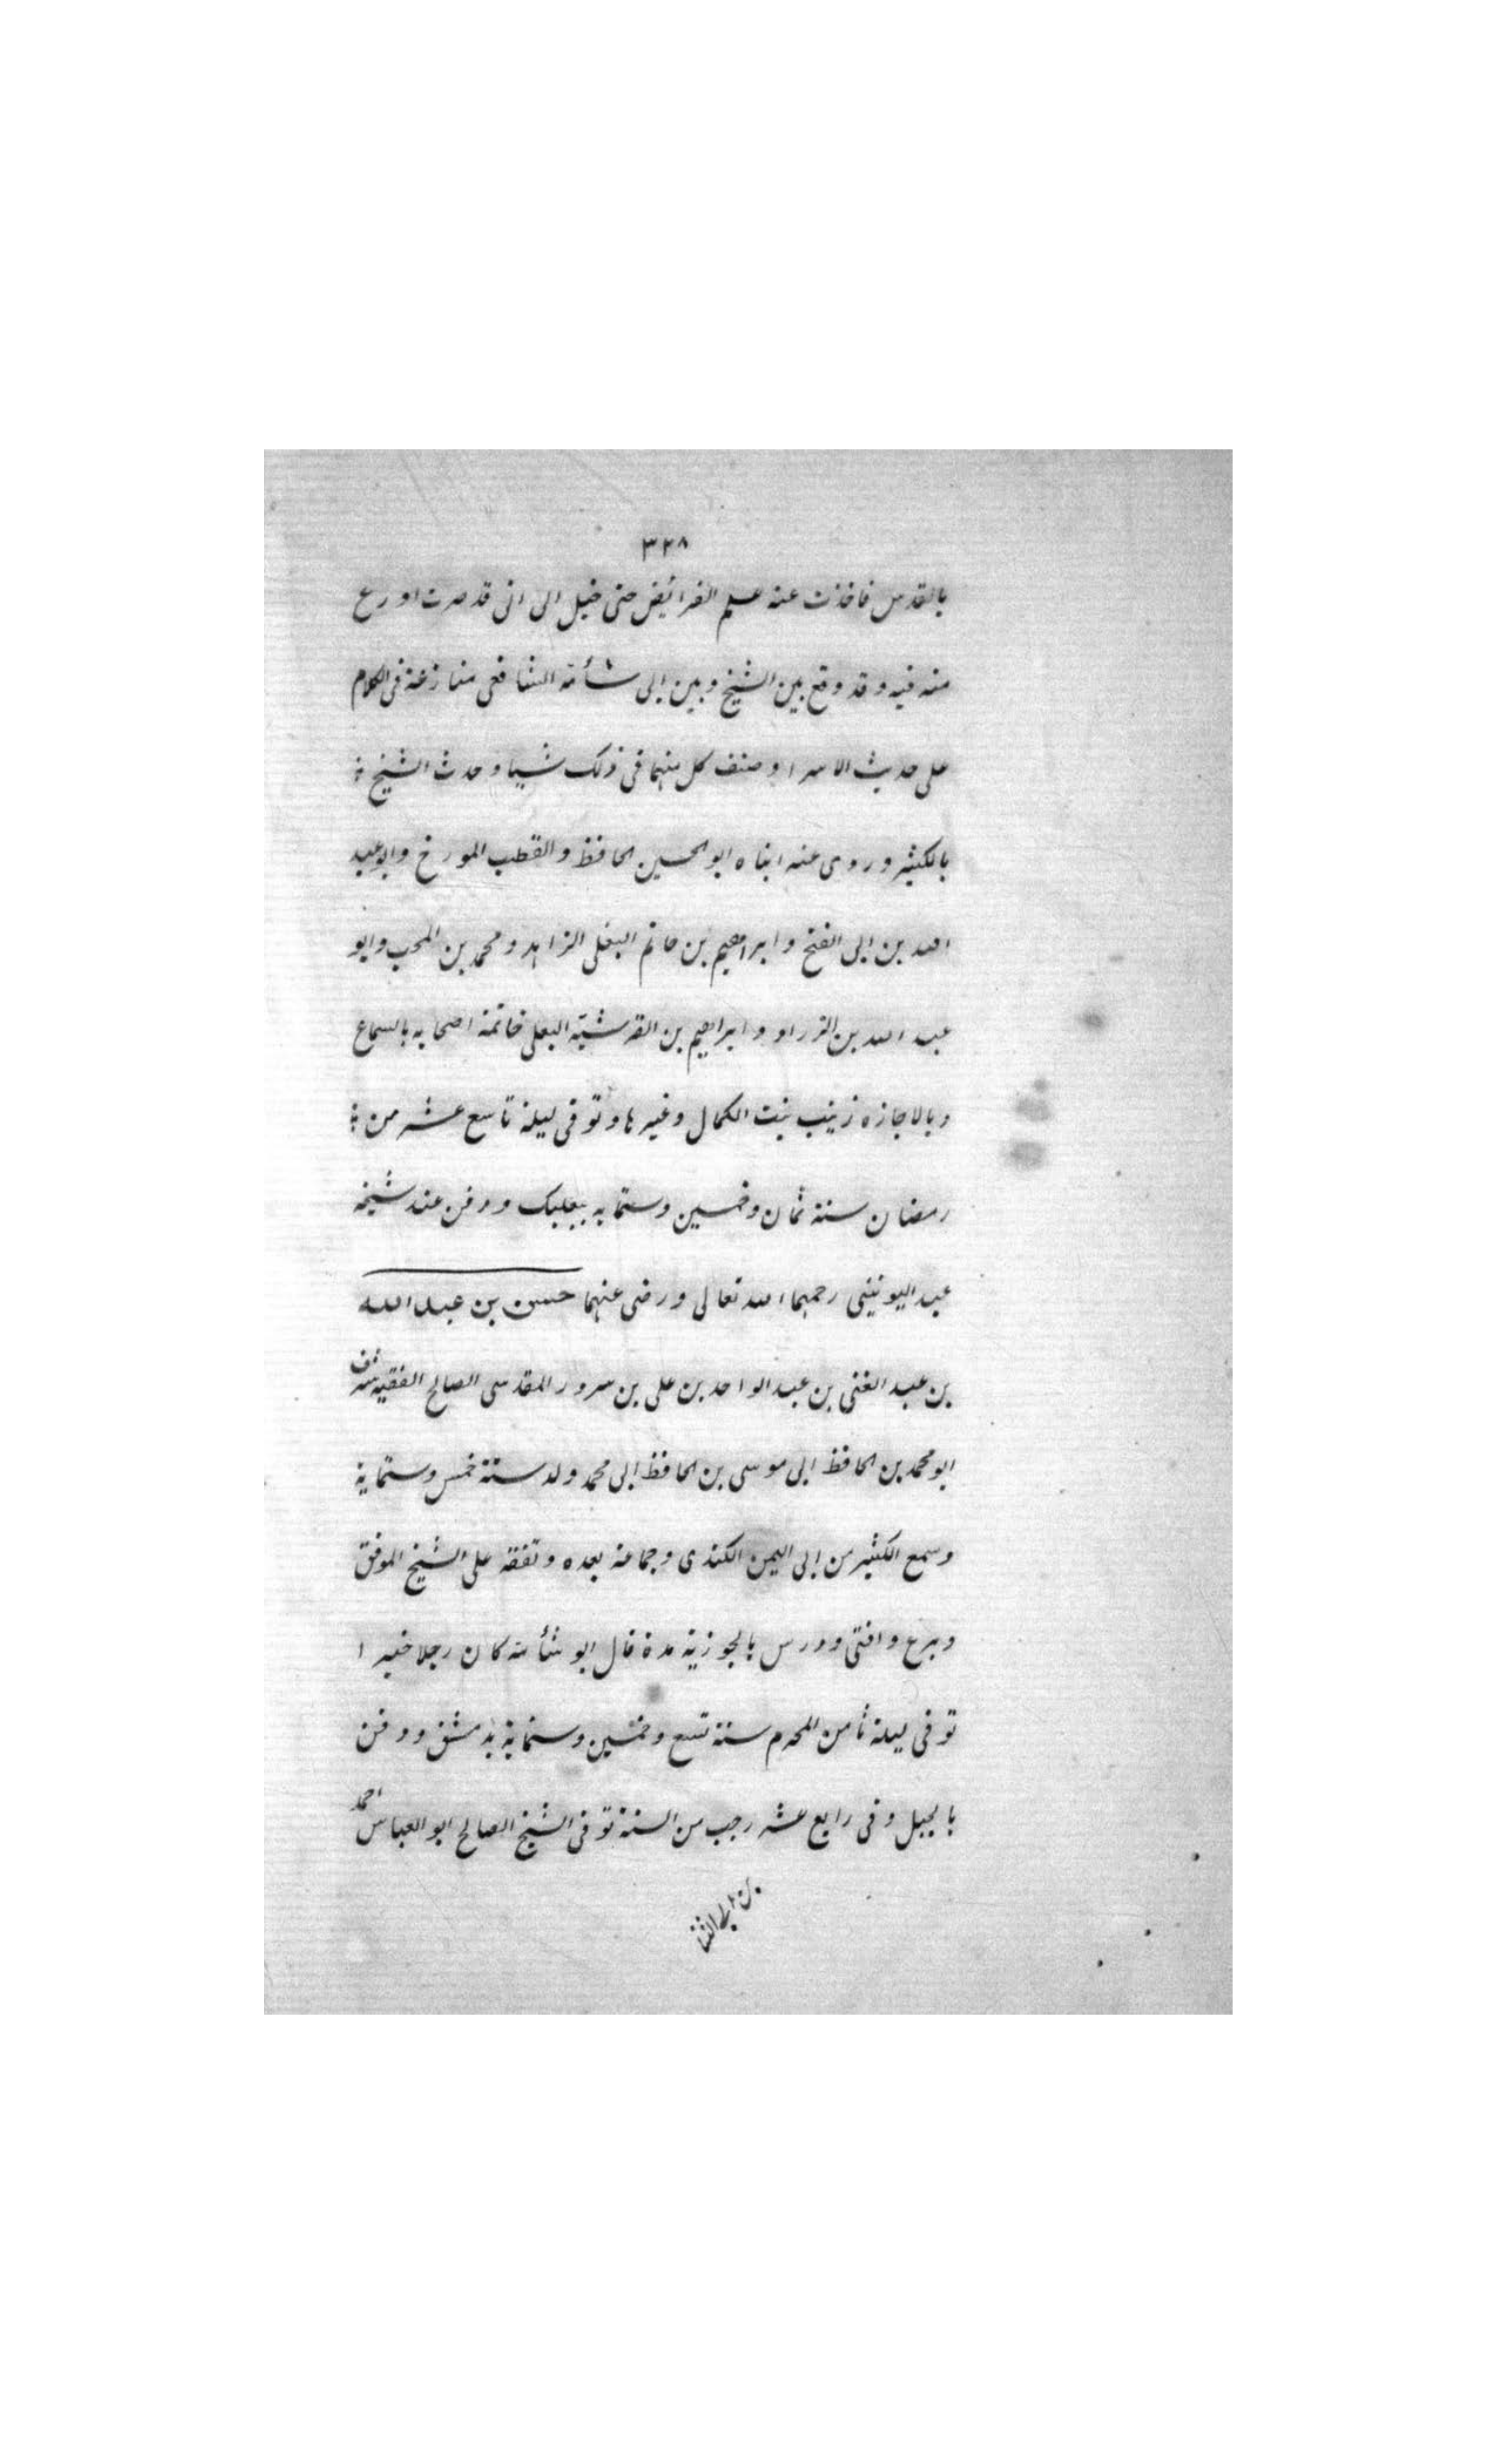 ٣٢٨
بالقدس فاخذت عنه علم الفرائيض حتى خيل الى انى قد صرت اورع
منه فيه وقد وقع بين الشيخ وبين ابى شأمة الشافعى منازعة فى الكلام
على حديث الاسرا وصنف كل منهما فى ذلك شيا وحدث الشيخ
بالكثير وروى عنه ابناه ابو الحسين الحافظ والقطب المورخ وابو عبد
الله بن ابى الفتح وابراهيم بن حاتم البعلى الزاهد ومحمد بن المحب وابو
عبد الله بن الزراد وابراهيم بن القرشية البعلى خاتمة اصحابه بالسماع
وبالاجازه زينب بنت الكمال وغيرها وتوفى ليلة تاسع عشر من
رمضان سنة ثمان وخمسين وستمايه ببعلبك ودفن عند شيخه
عبد اليونينى رحمهما الله تعالى ورضى عنهما حسن بن عبد الله
بن عبد الغنى بن عبد الواحد بن على بن سرور المقدسى الصالح الفقيه شرف
ابو محمد بن الحافظ ابى موسى بن الحافظ ابى محمد ولد سنة خمس وستماية
وسمع الكثير من ابى اليمن الكندى وجماعة بعده وتفقه على الشيخ الموفق
وبرع وافتى ودرس بالجوزية مدة قال ابو شأمة كان رجلا خيرا
توفى ليلة ثامن المحرم سنة تسع وخمسين وستماية بدمشق ودفن
بالجبل وفى رابع عشر رجب من السنة توفى الشيخ الصالح ابو العباس احمد
بن ابى الثنا